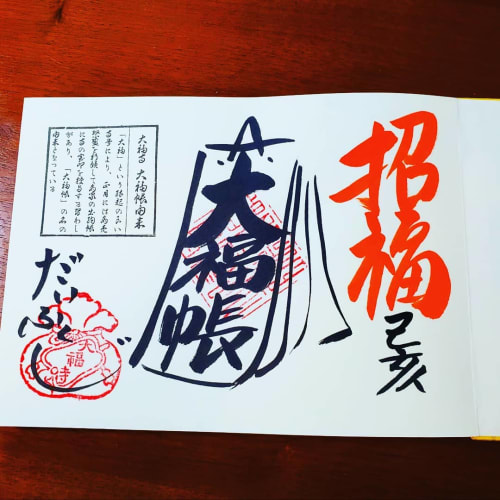 招福
己亥
大福帳
大福寺 大福帳由来
「大福」という縁起のよい
寺号により、正月には商売
繁盛を祈願して商家の出納帳
に寺の宝印を授与する習わし
があり、「大福帳」の名の
由来となっている
だいふくじ
大福寺